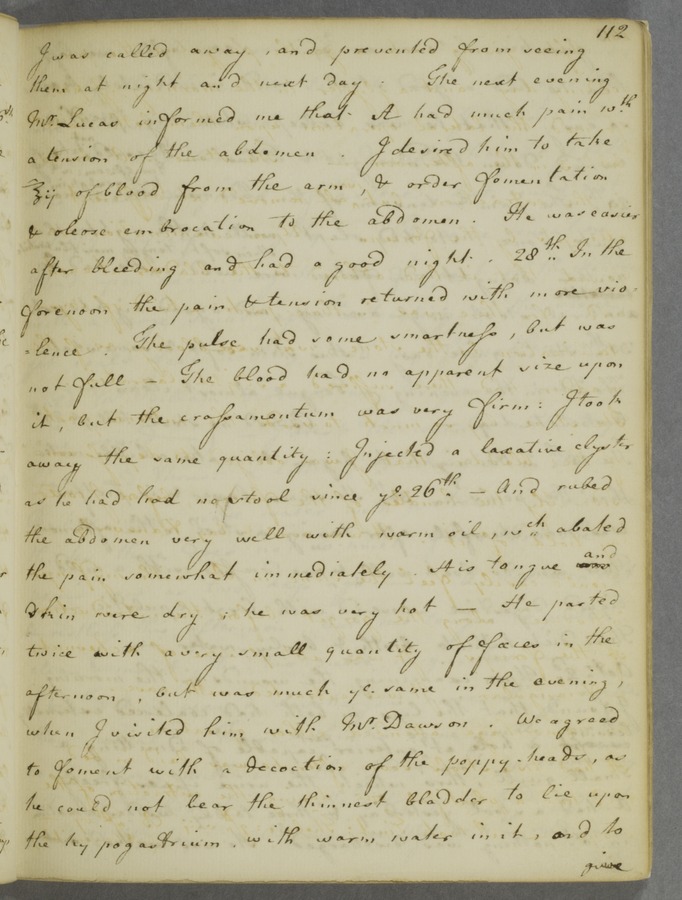 112
I was called away, and prevented from seeing
them at night and next day. The next evening
Mr. Lucas informed me that A had much pain wth
a tension of the abdomen. I desired him to take
℥ij of blood from the arm, & order fomentation
& oleose embrocation to the abdomen. He was easier
after bleeding and had a good night. 28th. In the
forenoon the pain & tension returned with more vio-
-lence. The pulse had some smartness, but was
not full – The blood had no apparent size upon
it, but the crassamentum was very firm: I took
away the same quantity: Injected a laxative clyster
as he had had no stool since ye. 26th. – And rubed
the abdomen very well with warm oil, wch abated
the pain somewhat immediately. His tongue and
skin were dry; he was very hot – He parted
twice with a very small quantity of fæces in the
afternoon, but was much ye. same in the evening,
when I visited him with Mr. Dawson. We agreed
to foment with a decoction of the poppy-heads, as
he could not bear the thinnest bladder to lie upon
the hypogastrium, with warm water in it, and to
give